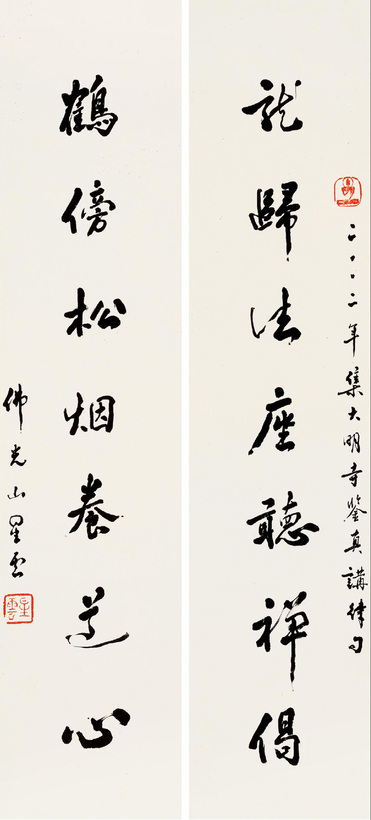 二〇〇二年集大明寺鑒真講律句
龍歸法座聽禪偈
鶴傍松烟養道心
佛光山星雲
星雲